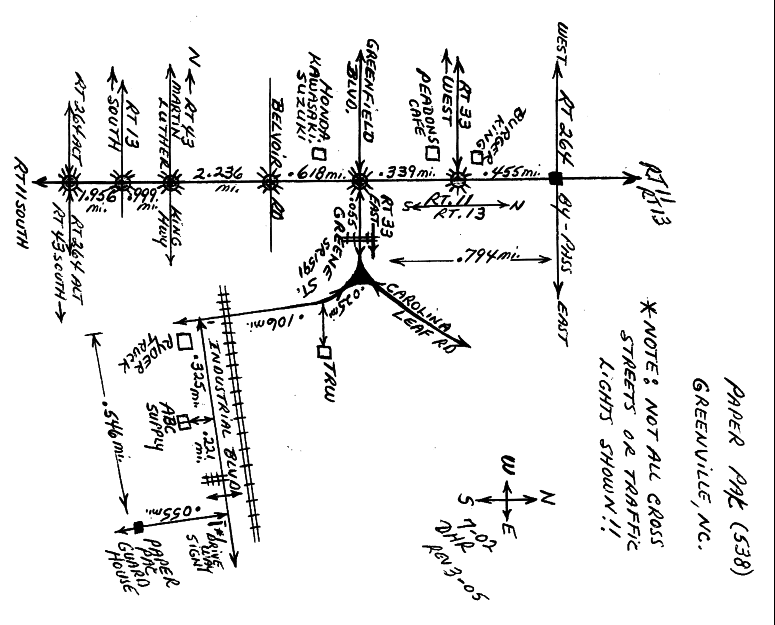 PAPER PAK (538)
GREENVILLE, NC.
*NOTE: NOT ALL CROSS
STREETS OR TRAFFIC
LIGHTS SHOWN!!
RT 11
RT 13
WEST
RT 264
BY-PASS
EAST
.455mi.
BURGER
KING
RT 33
WEST
PEADONS
CAFE
RT. 11
RT. 13
S
N
.794mi.
.339mi.
GREENFIELD
BLVD.
RT 33
EAST
.065
GREENE ST.
SR1591
CAROLINA
LEAF RD
.025mi.
.618mi.
HONDA
KAWASAKI
SUZUKI
BELVOIR
RD
2.236
mi.
N
RT 43
MARTIN
LUTHER
KING
HWY
.999
mi.
RT 13
SOUTH
1.956
mi.
RT 264 ALT
RT 264 ALT
RT 43 SOUTH
RT 11 SOUTH
.106mi.
TRW
RYDER
TRUCK
.325mi.
INDUSTRIAL BLVD.
ABC
SUPPLY
.221
mi.
.546mi.
.055mi.
DRIVE
WAY
SIGN
PAPER
PAC
GUARD
HOUSE
W
N
S
E
7-02
DHR
REV 3-05